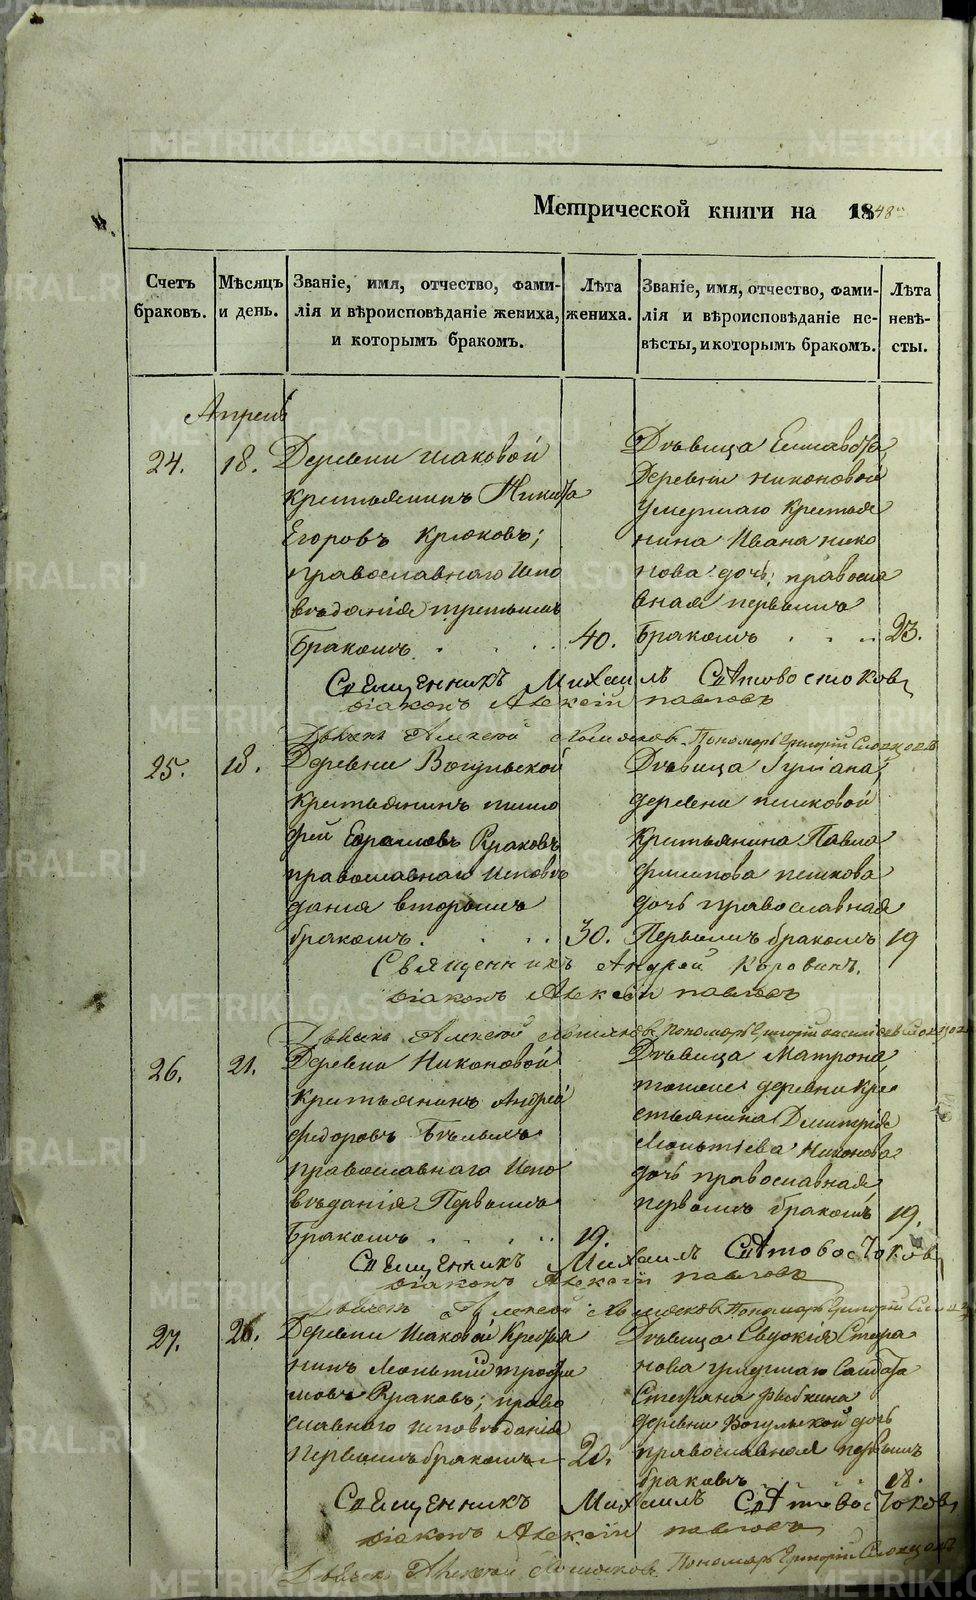 Метрической книги на 1848
Счетъ браковъ.
Мѣсяцъ и день.
Званіе, имя, отчество, фами-
лія и вѣроисповѣданіе жениха,
и которымъ бракомъ.
Лѣта жениха.
Званіе, имя, отчество, фами-
лія и вѣроисповѣданіе не-
вѣсты, и которымъ бракомъ.
Лѣта невѣ-
сты.
Апрель
24. 18.
Деревни Исаковой
крестьянинъ Никита
Егоровъ Крюковъ;
православнаго испо
вѣданія третьимъ
бракомъ 40.
Дѣвица Елисавета
деревни Никоновой
умершаго крестья
нина Ивана Нико
нова дочь; правосла
вная первымъ
бракомъ 23.
Священникъ Михаилъ
діаконъ Алексій Павловъ
Дьячекъ Алексей Пономарь Григорій
25. 18.
Деревни Вогульской
крестьянинъ Тимо
фей Краковъ
православнаго исповѣ
данія вторымъ
бракомъ 30.
Дѣвица Іуліана,
деревни Пешковой
крестьянина Павла
Филипова Пешкова
дочь православная
Первымъ бракомъ 19
Священникъ Андрей Коровинъ.
діаконъ Алексій Павловъ
Дьячекъ Алексей Пономарь Григорій
26. 21.
Деревни Никоновой
крестьянинъ Андрей
Федоровъ Бѣлыхъ
православнаго испо
вѣданія Первымъ
бракомъ 19.
Дѣвица Матрона
тойже деревни кре
стьянина Дмитрія
Никонова
дочь православная
первымъ бракомъ 19.
Священникъ Михаилъ
діаконъ Алексій Павловъ
Дьячекъ Алексей Пономарь Григорій
27. 26.
Деревни Исаковой Крестья
нинъ Леонтій Трофи
мовъ Краковъ; право
славнаго исповѣданія
первымъ бракомъ 20.
Дѣвица Евдокія Степа
нова умершаго Солдата
Степана Рыбкина
деревни Вогульской дочь
православная первымъ
бракомъ 18.
Священникъ Михаилъ
діаконъ Алексій Павловъ
Дьячекъ Алексей Пономарь Григорій
METRIKI.GASO-URAL.RU